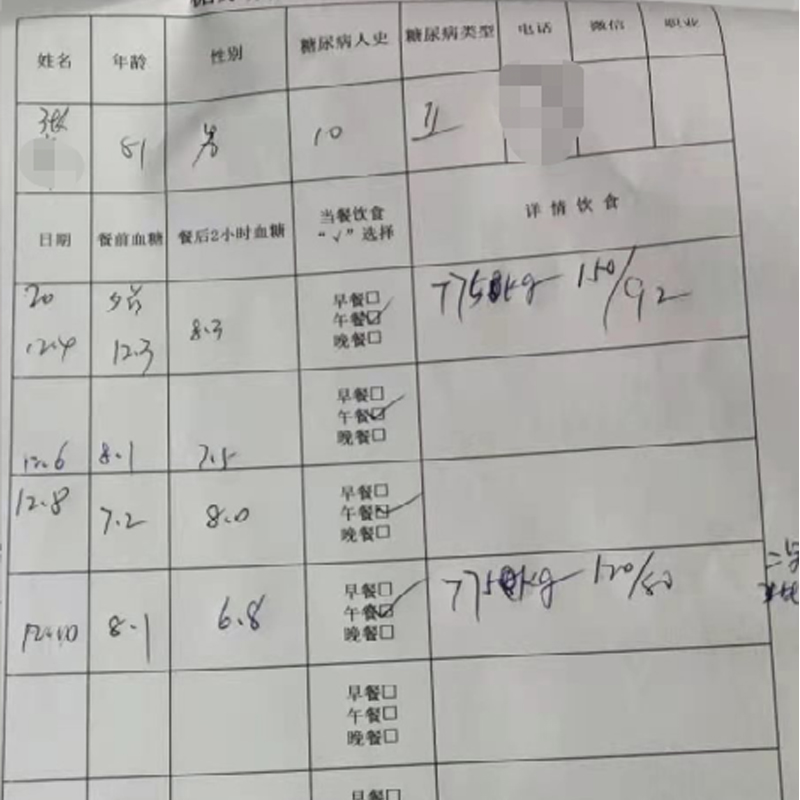 姓名 年龄 性别 糖尿病人史 糖尿病类型 电话 微信 职业
张 81 男 10 II
日期 餐前血糖 餐后2小时血糖 当餐饮食 “√”选择 详情饮食
20
12.4 12.3 8.3 早餐□ 午餐☑ 晚餐□ 150/92
12.6 8.1 7.5 早餐□ 午餐☑ 晚餐□
12.8 7.2 8.0 早餐□ 午餐☑ 晚餐□
12.10 8.1 6.8 早餐□ 午餐☑ 晚餐□ 120/80
早餐□ 午餐□ 晚餐□
早餐□